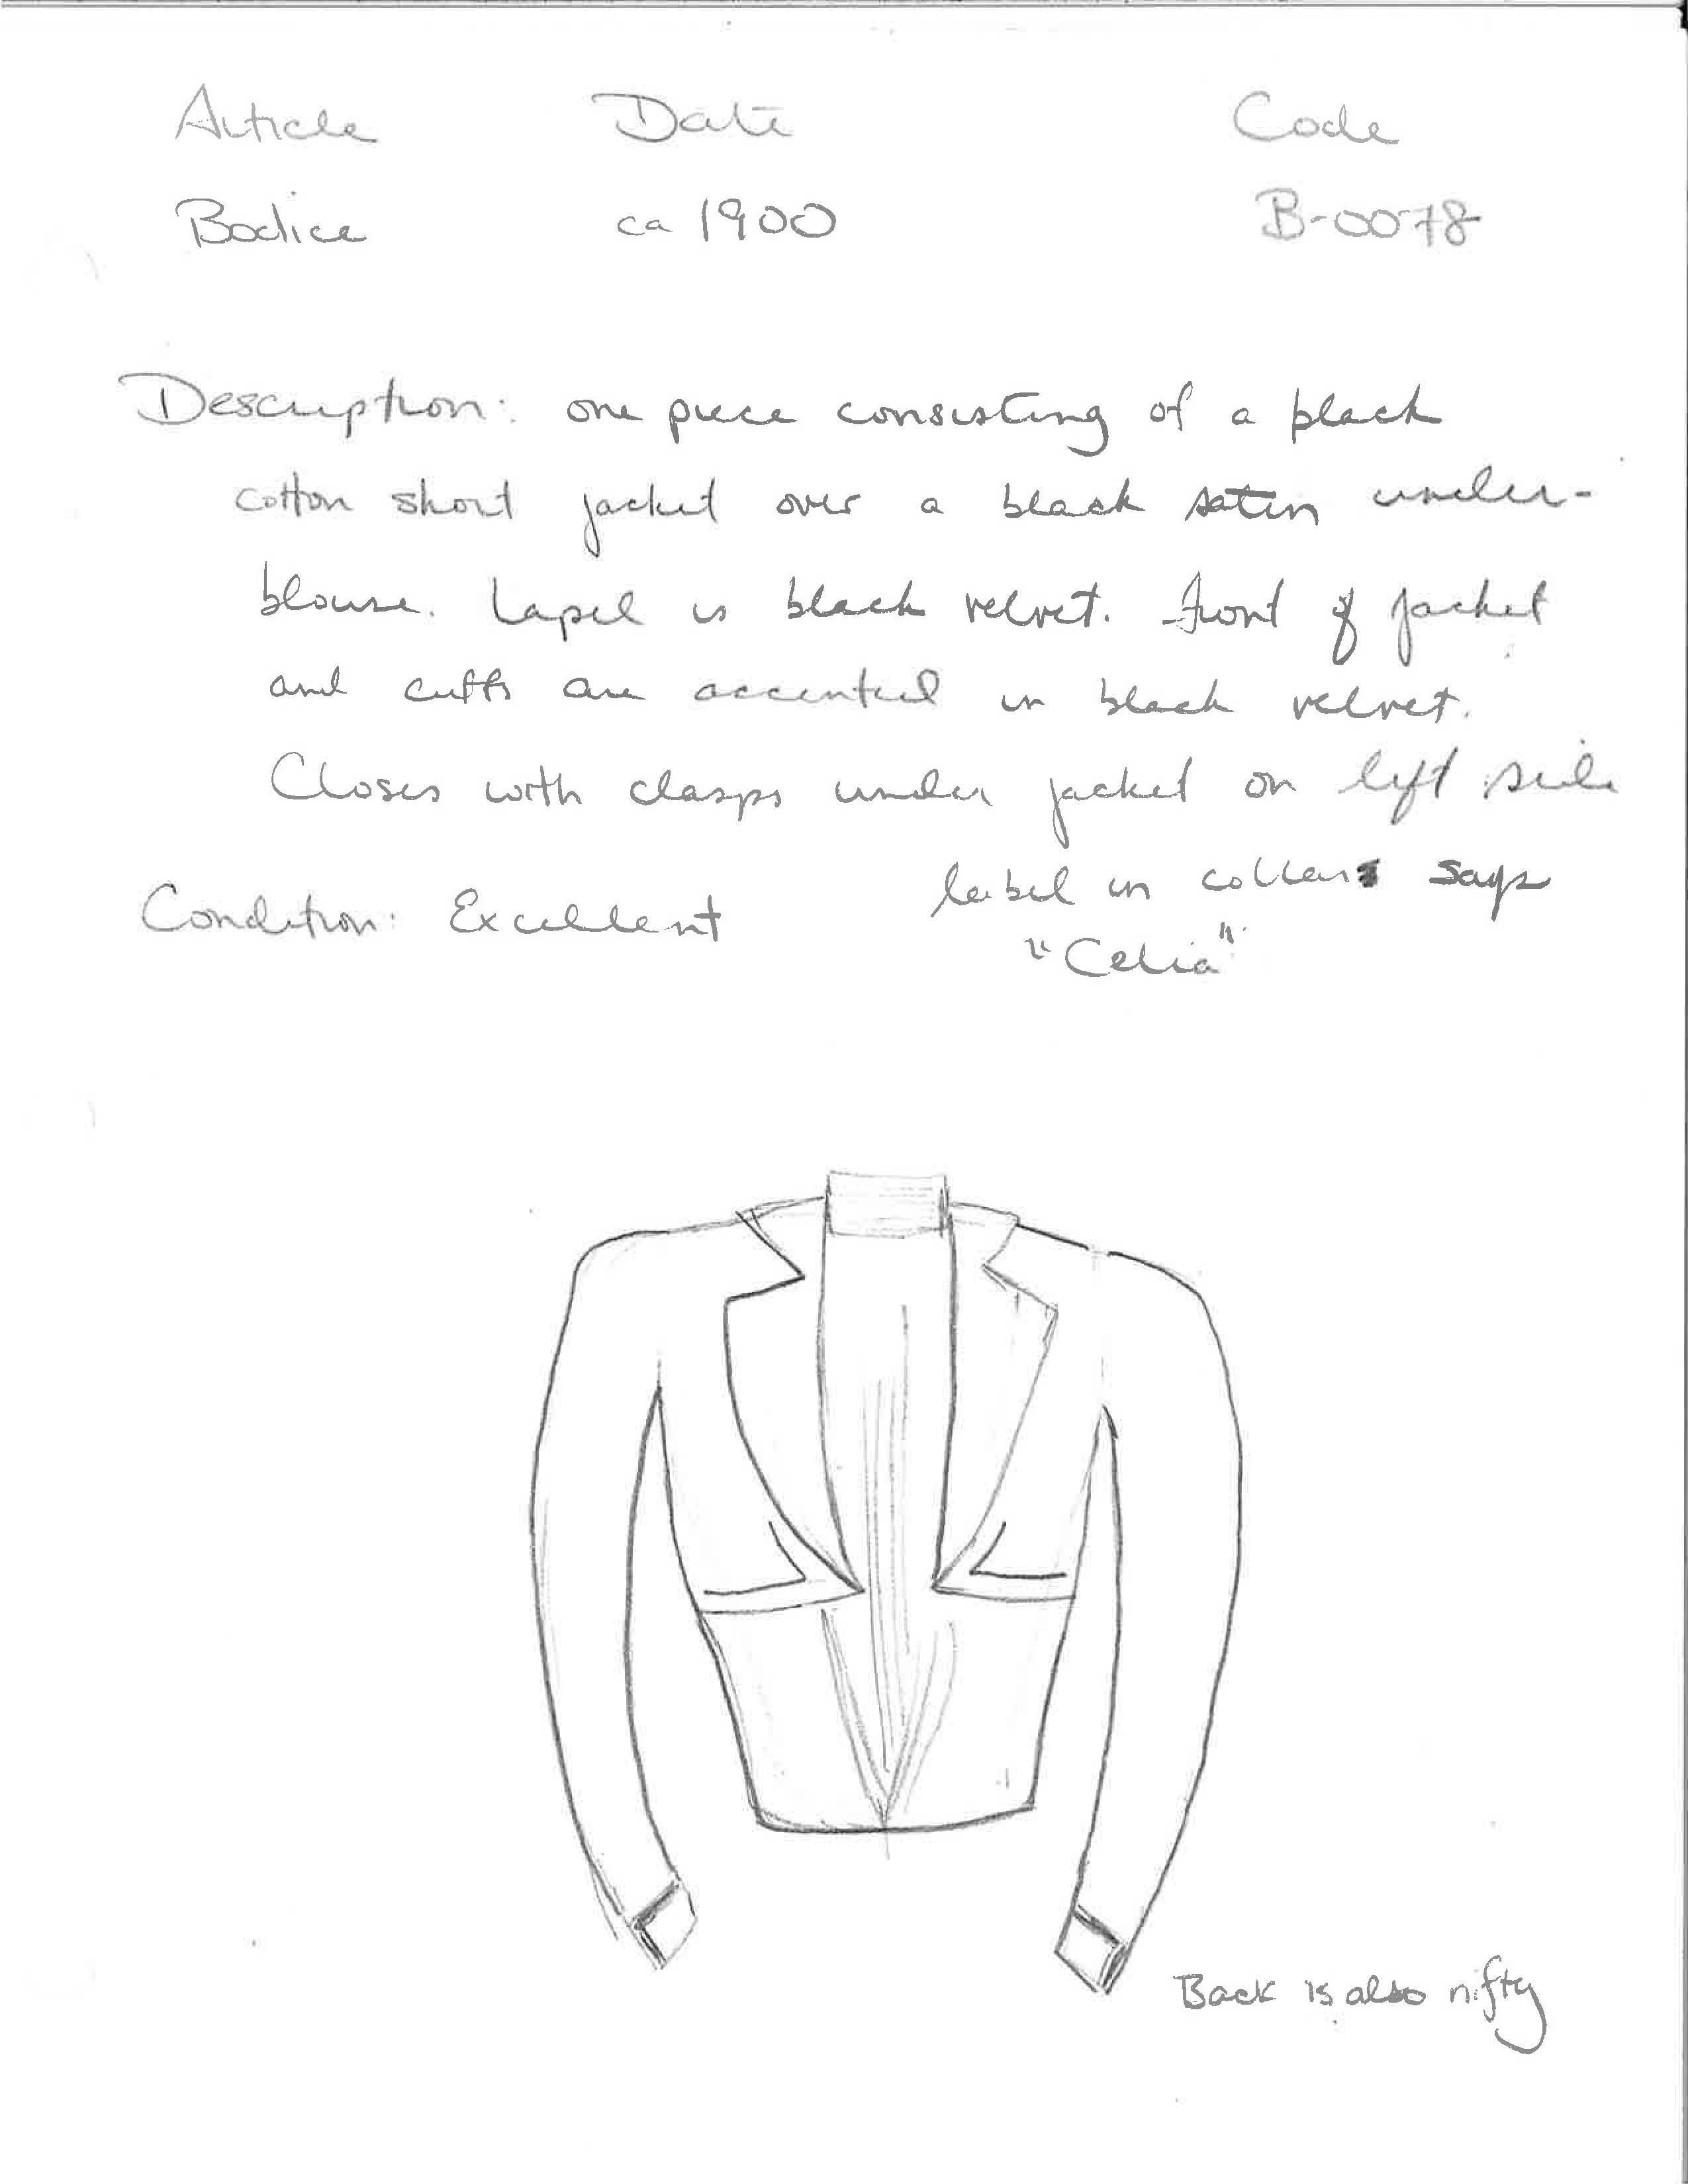 Article Date Code
Bodice ca 1900 B-0078
Description: one piece consisting of a black
cotton short jacket over a black satin under-
blouse. Lapel is black velvet. Front of jacket
and cuffs are accented in black velvet.
Closes with clasps under jacket on left side
label in collar says
Condition: Excellent
"Celia"
Back is also nifty